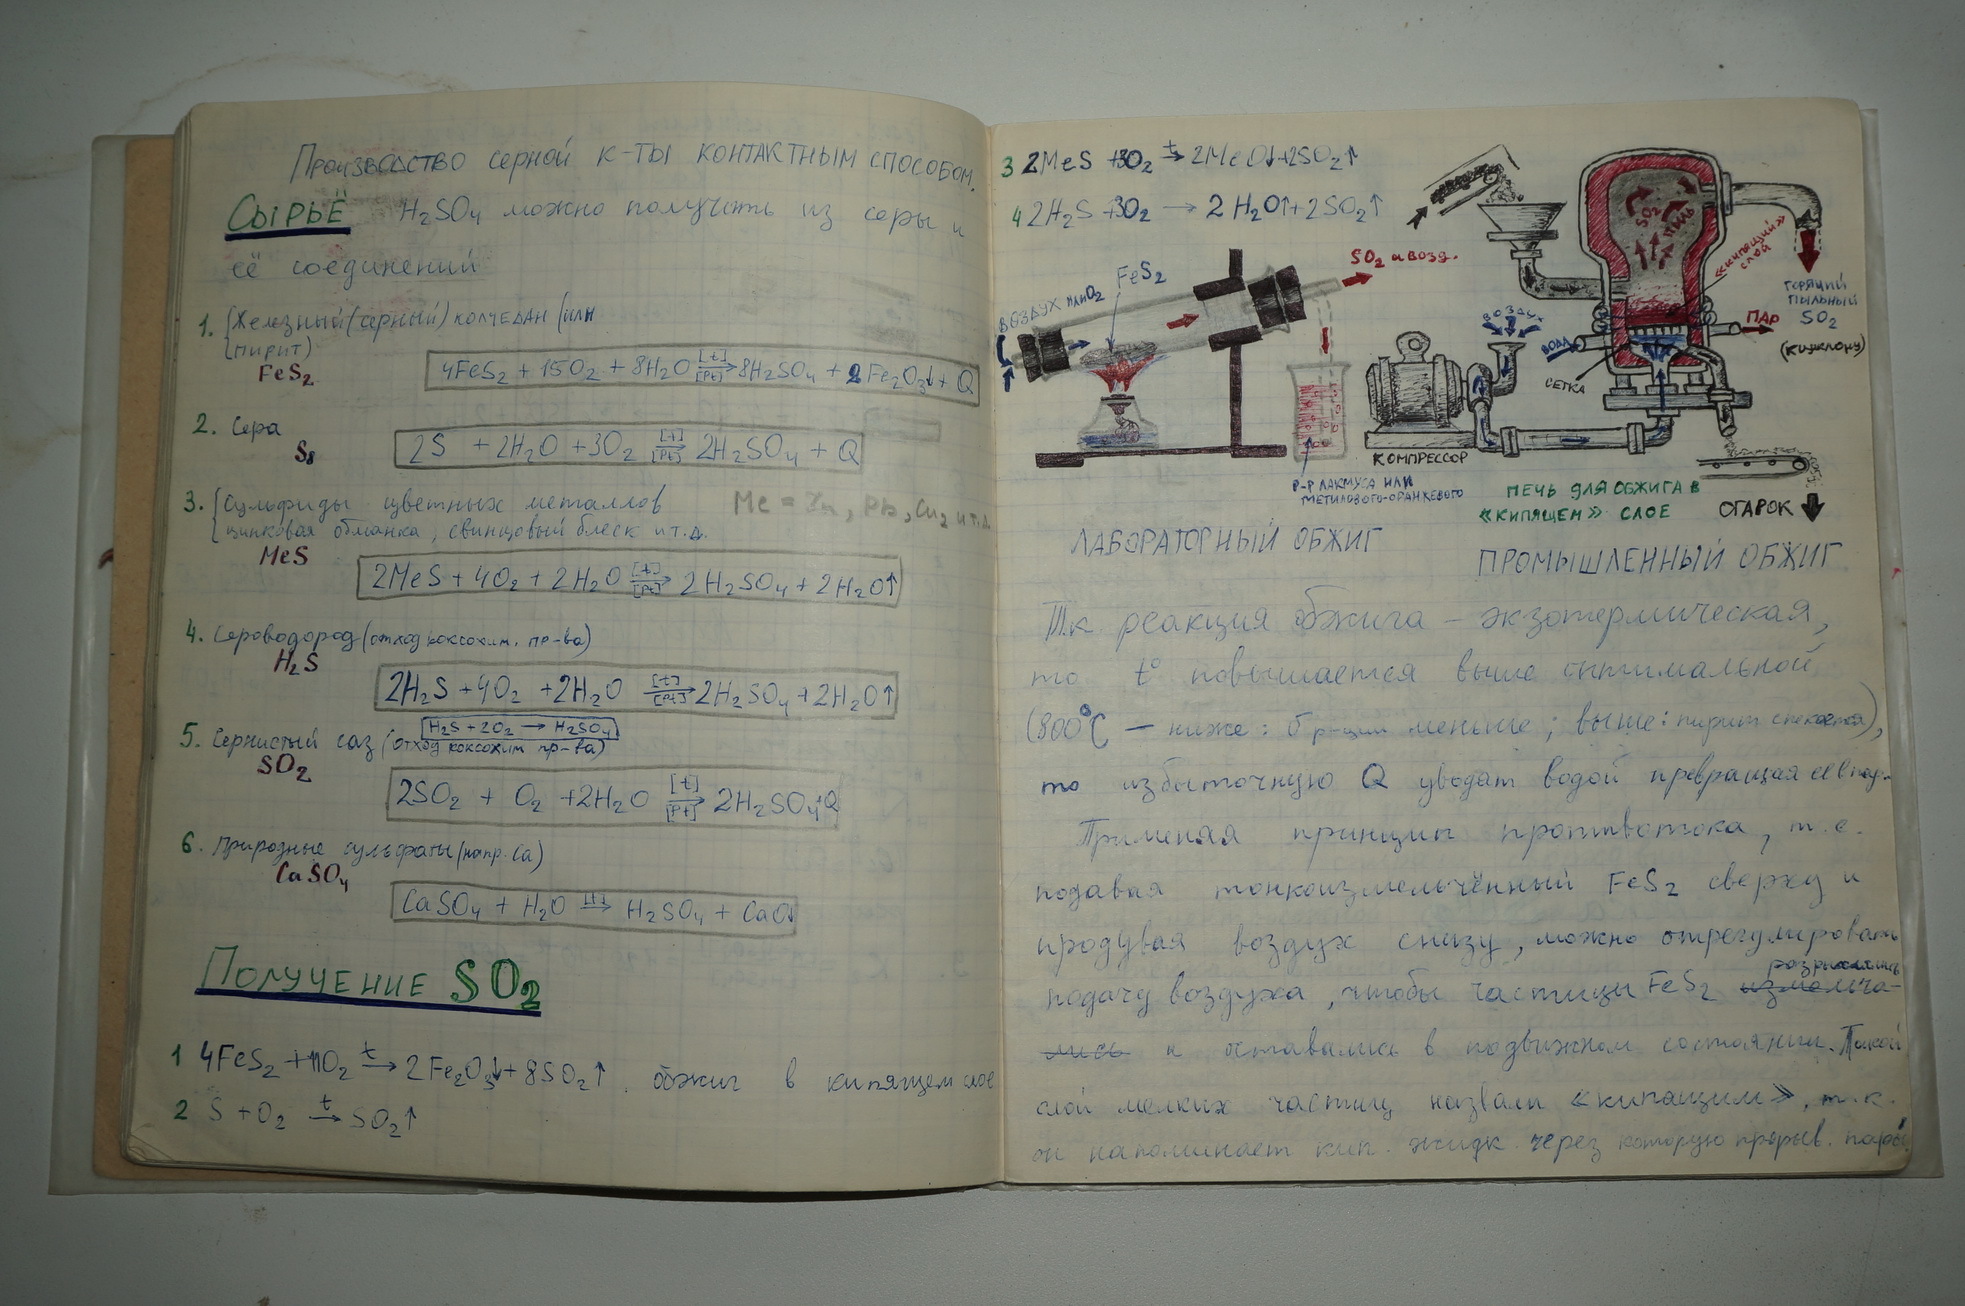 Производство серной к-ты контактным способом.
Сырьё H₂SO₄ можно получить из серы и
её соединений
1. Железный (серный) колчедан (или
пирит)
FeS₂
4FeS₂ + 15O₂ + 8H₂O [t]→[Pt] 8H₂SO₄ + 2Fe₂O₃↓ + Q
2. Сера
S₈
2S + 2H₂O + 3O₂ [t]→[Pt] 2H₂SO₄ + Q
3. Сульфиды цветных металлов Me = Zn, Pb, Cu₂ и т.д.
цинковая обманка, свинцовый блеск и т.д.
MeS
2MeS + 4O₂ + 2H₂O [t]→[Pt] 2H₂SO₄ + 2H₂O↑
4. Сероводород (отход коксохим. пр-ва)
H₂S
2H₂S + 4O₂ + 2H₂O [t]→[Pt] 2H₂SO₄ + 2H₂O↑
H₂S + 2O₂ → H₂SO₄
5. Сернистый газ (отход коксохим пр-ва)
SO₂
2SO₂ + O₂ + 2H₂O [t]→[Pt] 2H₂SO₄+Q
6. Природные сульфаты (напр. Ca)
CaSO₄
CaSO₄ + H₂O [t]→ H₂SO₄ + CaO↓
Получение SO₂
1 4FeS₂ + 11O₂ t→ 2Fe₂O₃↓ + 8SO₂↑. обжиг в кипящем слое
2 S + O₂ t→ SO₂↑
3 2MeS + 3O₂ t→ 2MeO↓ + 2SO₂↑
4 2H₂S + 3O₂ → 2H₂O↑ + 2SO₂↑
воздух или O₂
FeS₂
SO₂ и возд.
р-р лакмуса или
метилового-оранжевого
Лабораторный обжиг
компрессор
воздух
вода
сетка
SO₂
пыль
«кипящий»
слой
горящий
пыльный
SO₂
(к циклону)
пар
печь для обжига в
«кипящем» слое
огарок
Промышленный обжиг
Т.к. реакция обжига – экзотермическая,
то t° повышается выше оптимальной
(800°C – ниже: υ р-ции меньше; выше: пирит спекается),
то избыточную Q уводят водой превращая её в пар.
Применяя принцип противотока, т.е.
подавая тонкоизмельчённый FeS₂ сверху и
продувая воздух снизу, можно отрегулировать
подачу воздуха, чтобы частицы FeS₂ измельча-
лись и оставались в подвижном состоянии. Такой
слой мелких частиц назвали «кипящим», т.к.
он напоминает кип. жидк. через которую прорыв. пары